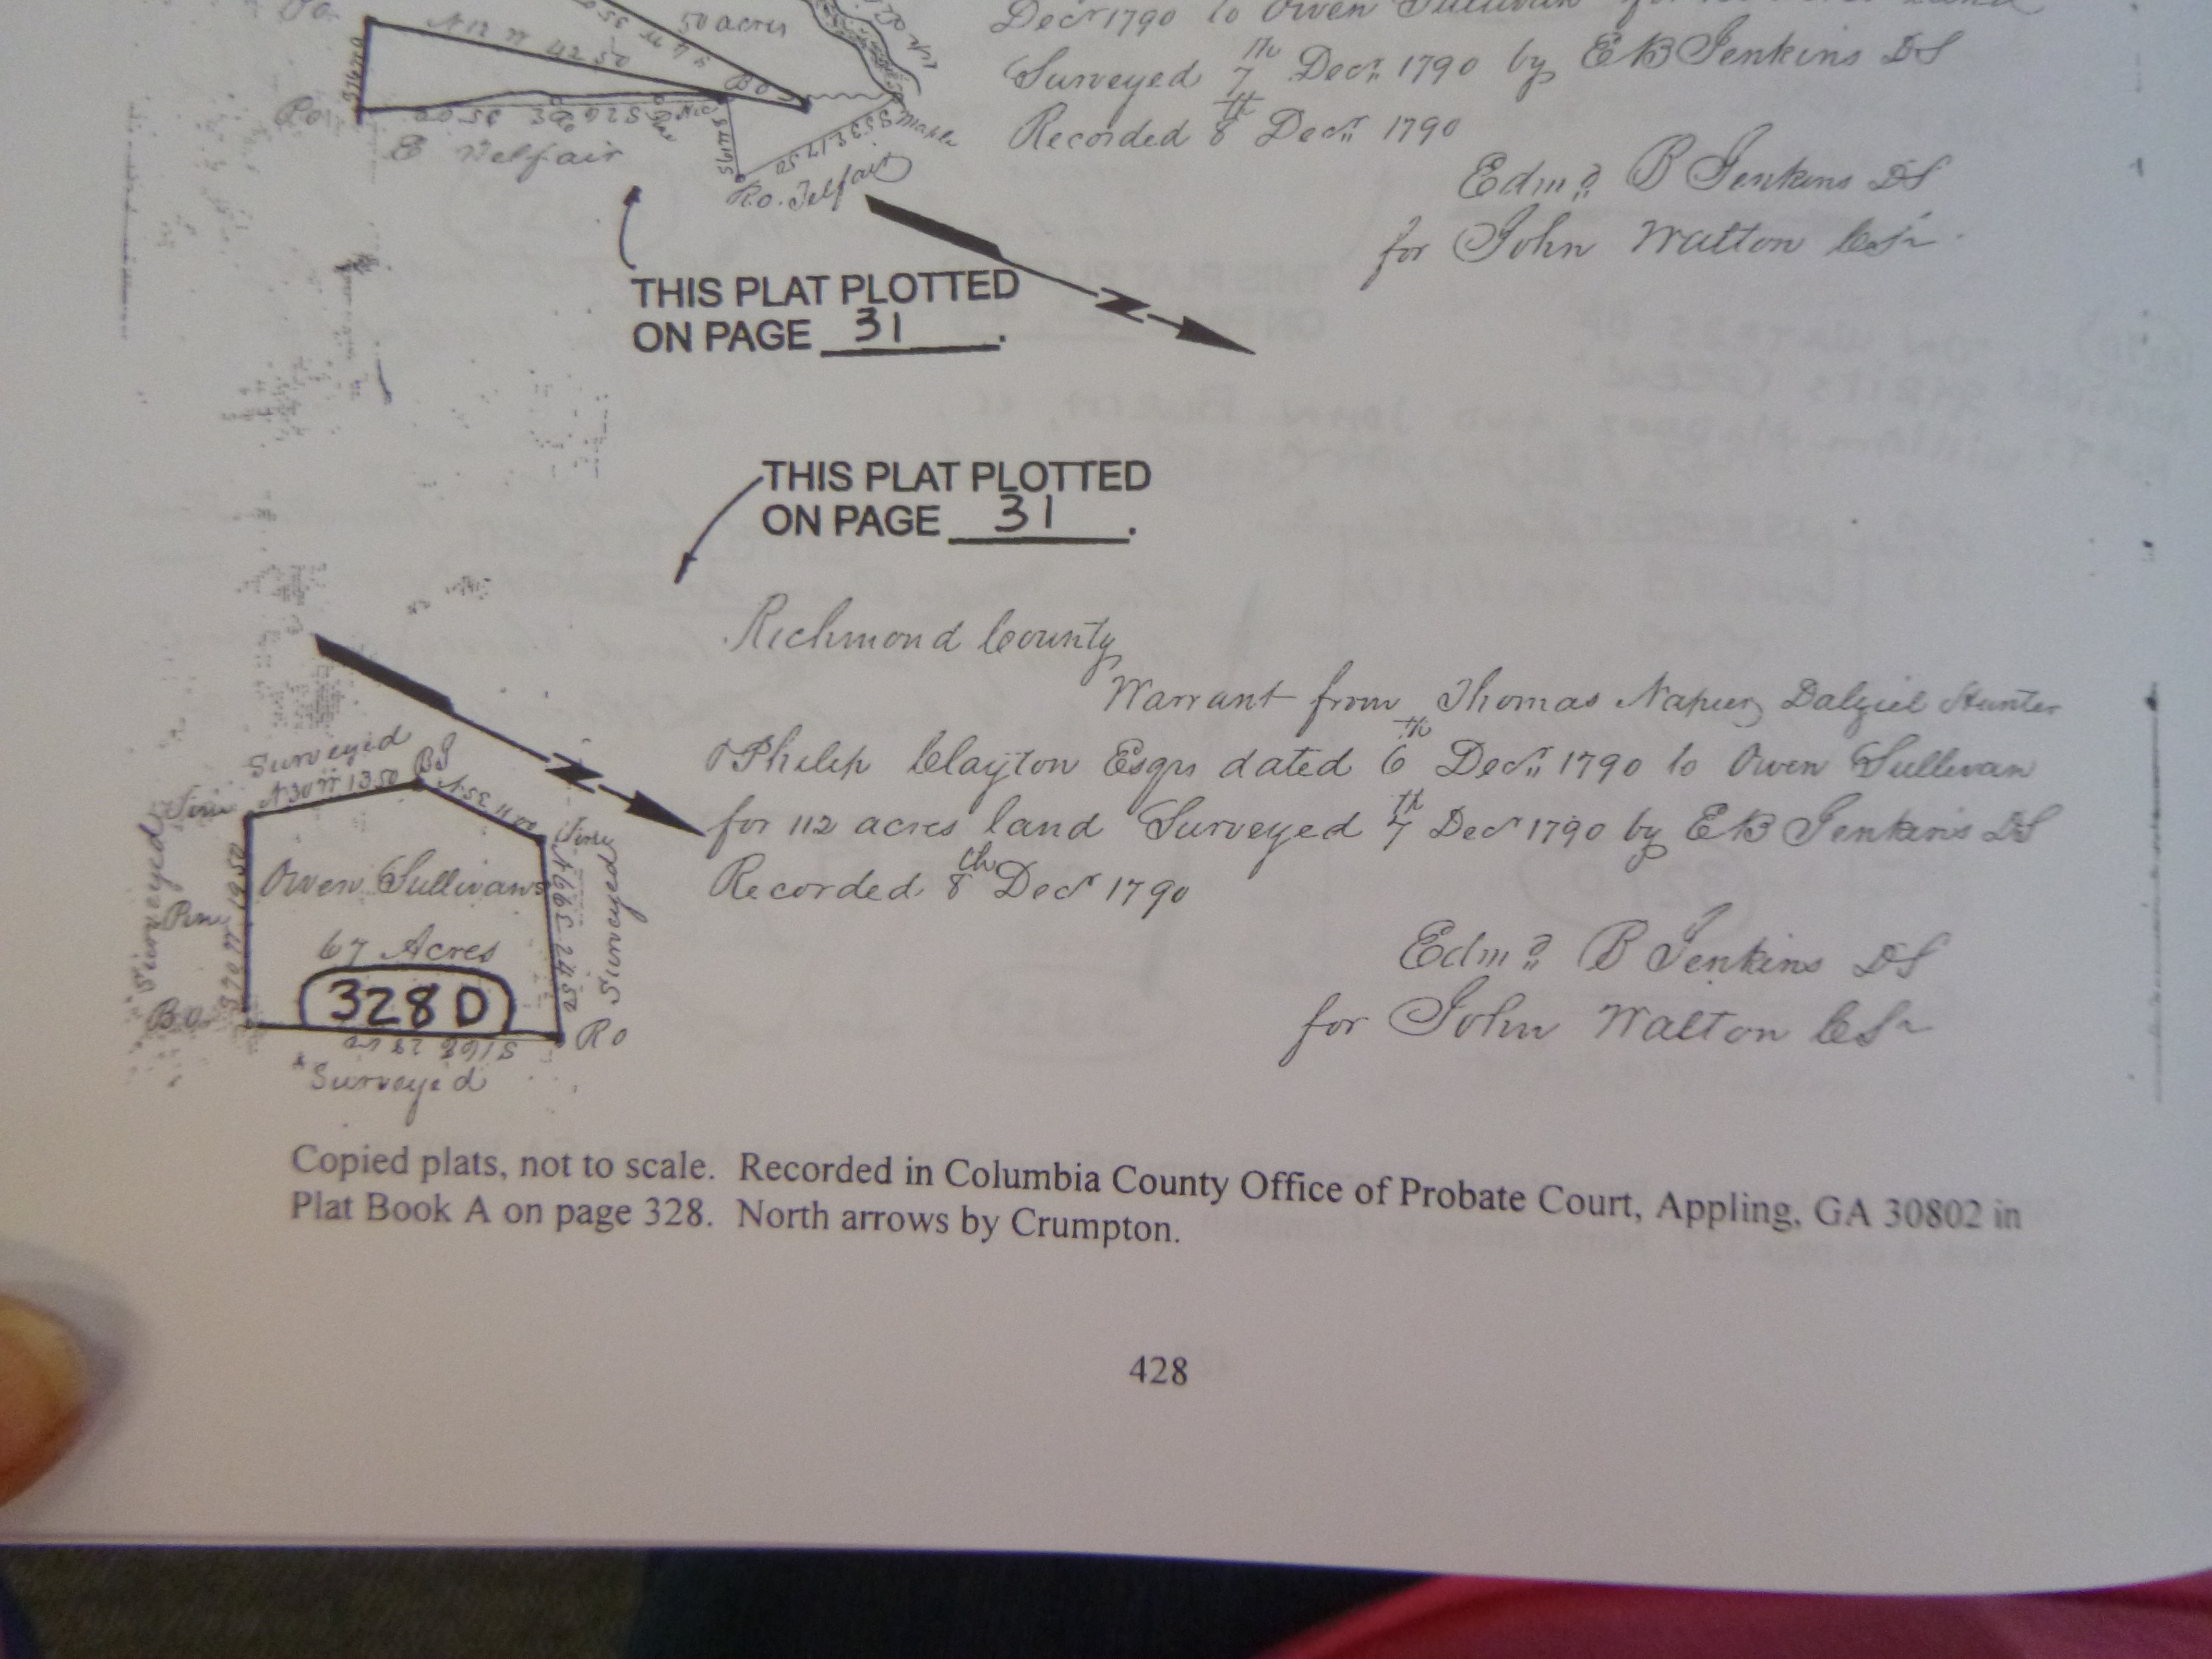 50 acres
Decr 1790 to Owen Sullivan
Surveyed 7th Decr 1790 by EB Jenkins DS
Recorded 8th Decr 1790
N 12 W 42 50
BO
RO
E Telfair
Maple
R.O. Telfair
Edmd B Jenkins DS
for John Walton CSr
THIS PLAT PLOTTED
ON PAGE 31.
THIS PLAT PLOTTED
ON PAGE 31.
Richmond County
Warrant from Thomas Napier, Dalziel Hunter
& Philip Clayton Esqrs dated 6th Decr 1790 to Owen Sullivan
for 112 acres land Surveyed 7th Decr 1790 by EB Jenkins DS
Recorded 8th Decr 1790
Edmd B Jenkins DS
for John Walton CSr
Surveyed
N 30 W 13.50
BJ
Surveyed
Pine
Owen Sullivans
67 Acres
328 D
N 66 E 24.50
Surveyed
BO
RO
Surveyed
Copied plats, not to scale. Recorded in Columbia County Office of Probate Court, Appling, GA 30802 in
Plat Book A on page 328. North arrows by Crumpton.
428